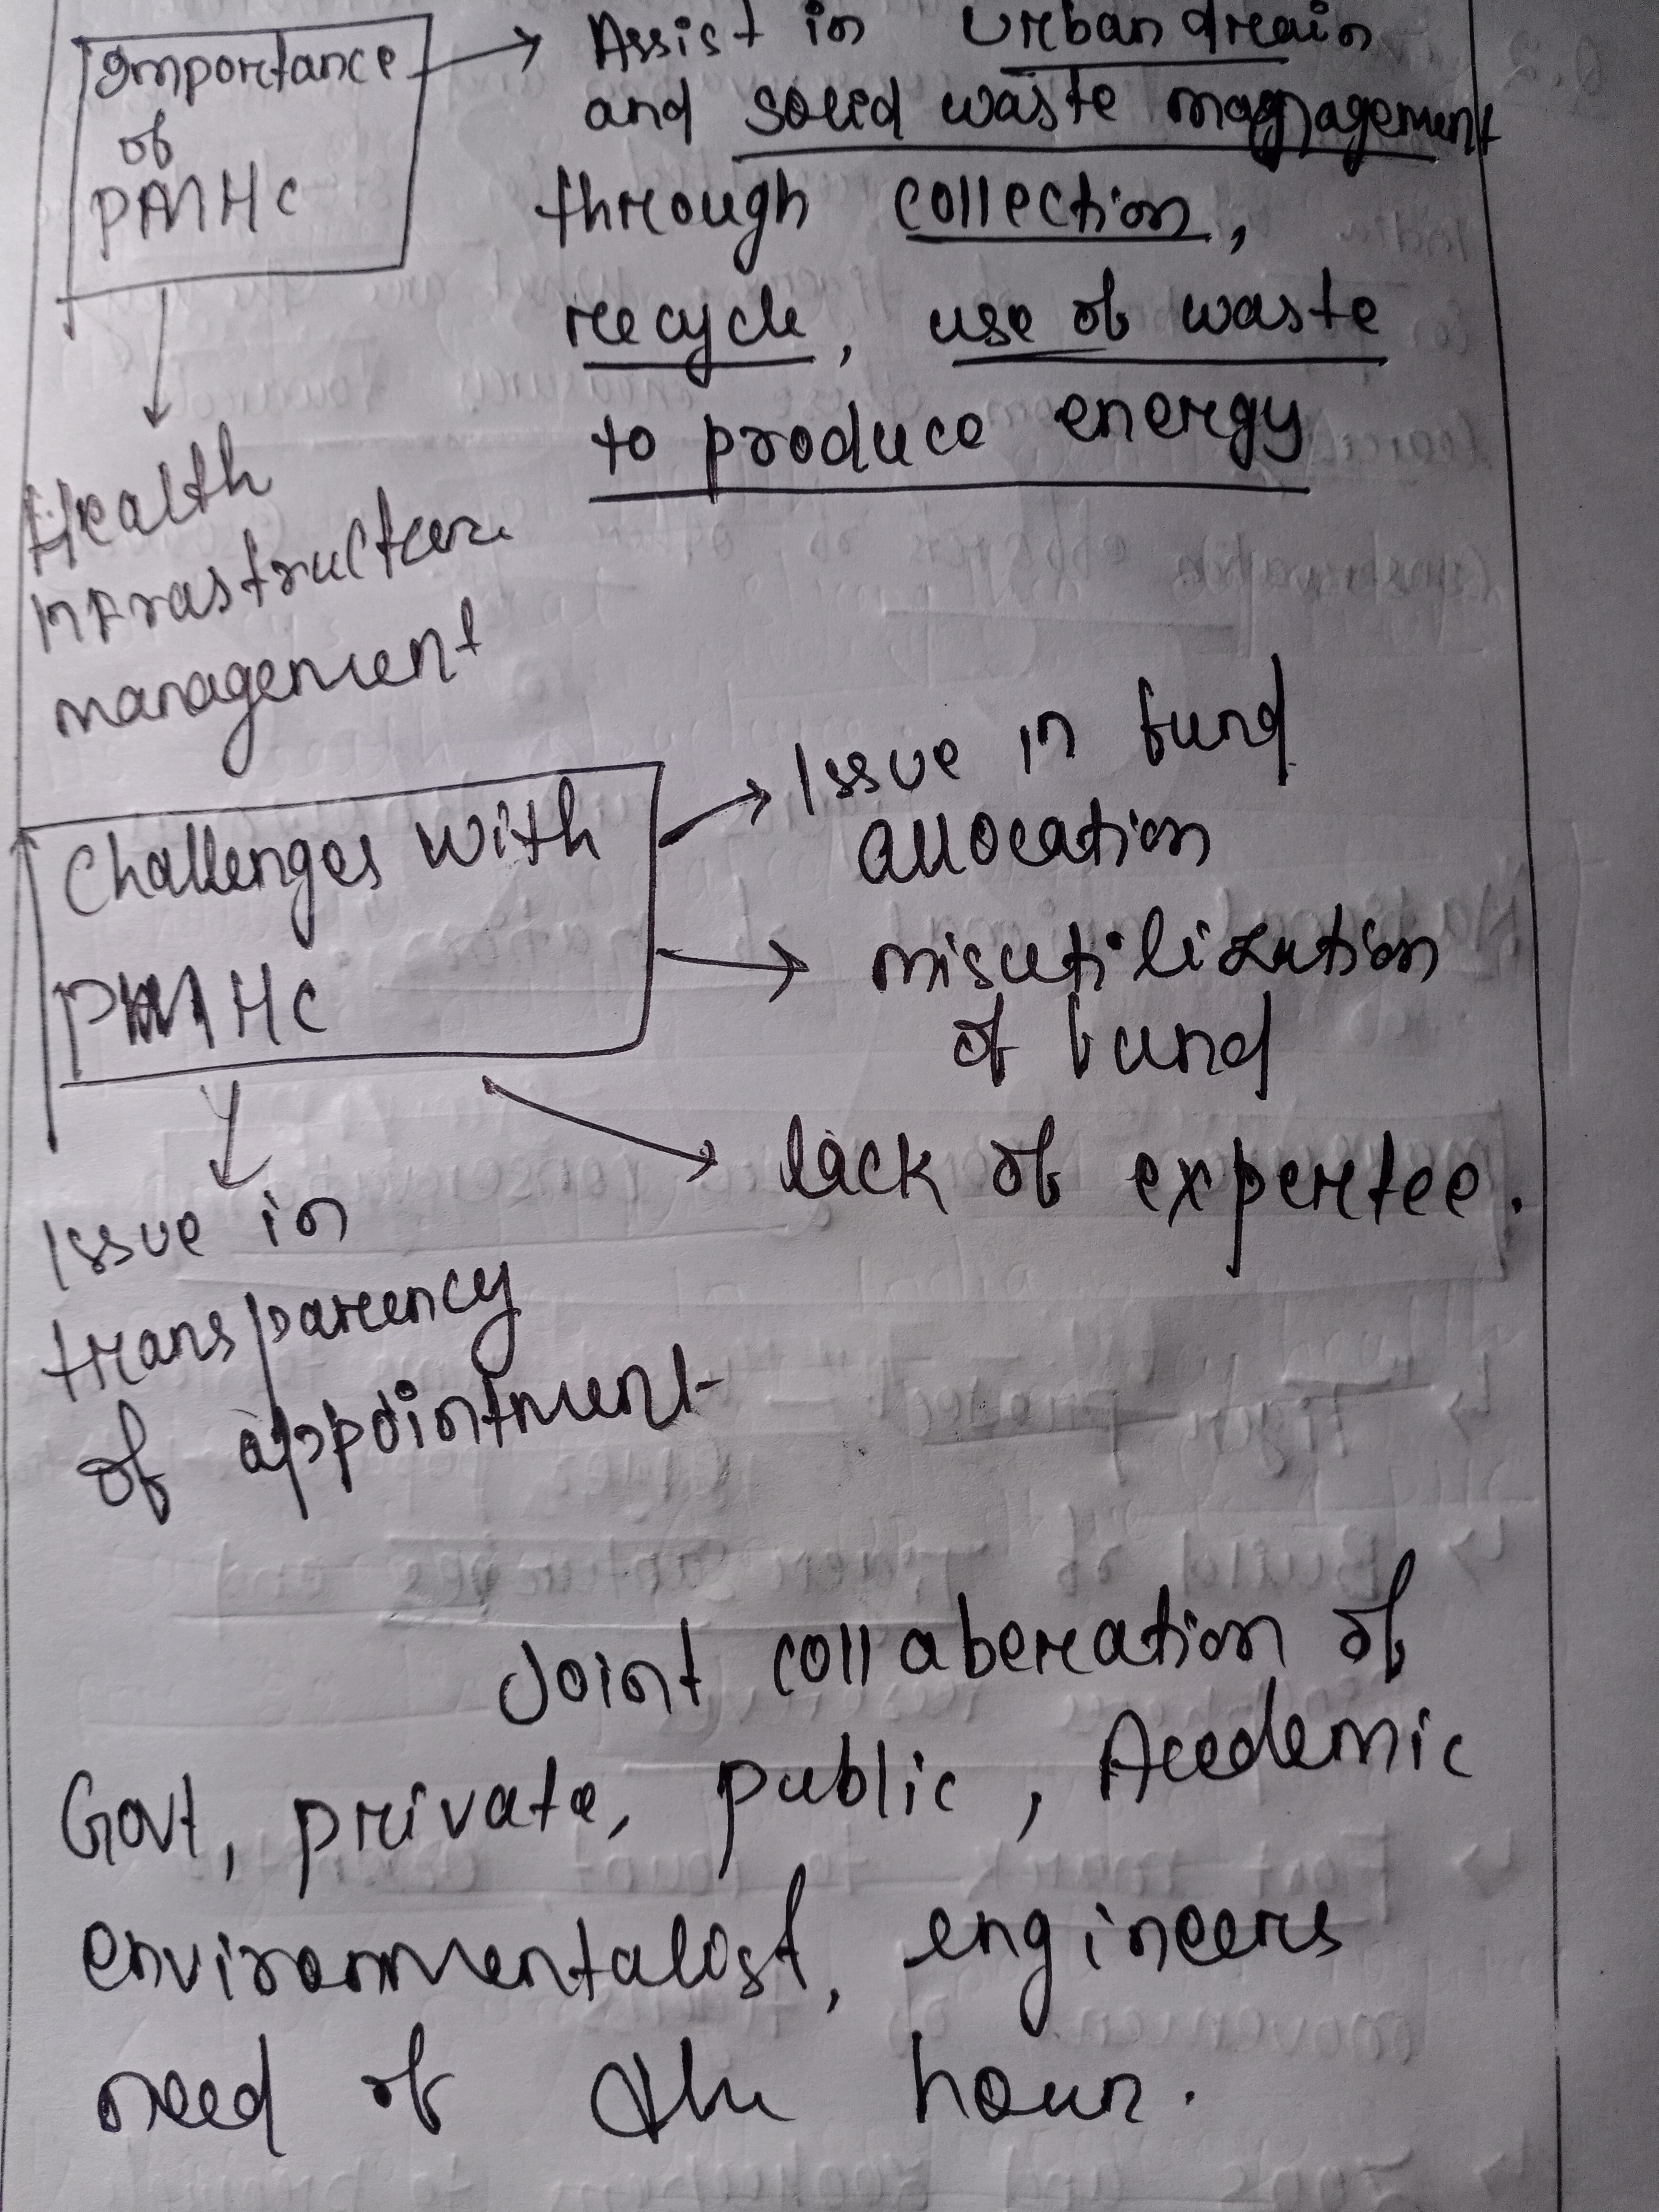 Importance
of
PMHC
Assist in Urban drain
and solid waste managagement
through collection,
recycle, use of waste
to produce energy
Health
infrastructure
management
Challenges with
PMHC
Issue in fund
allocation
misutilization
of fund
lack of expertee.
Issue in
transparency
of appointment
Joint collaberation of
Govt, private, public, Acedemic
environmentalist, engineers
need of the hour.